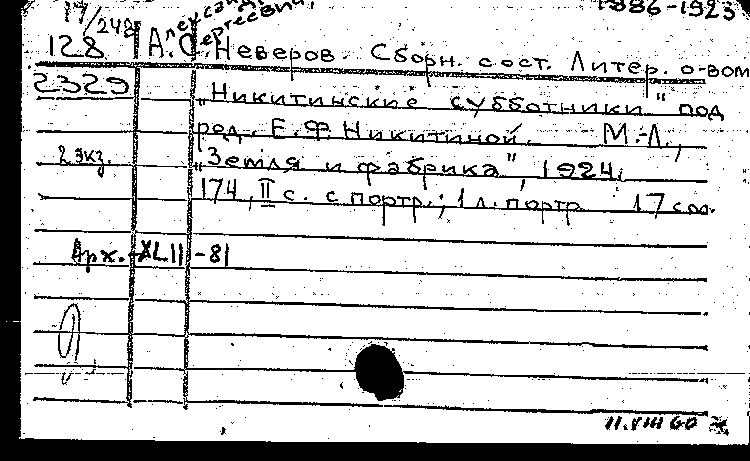 17/248 Александр Сергеевич, 1886-1923
128 А.С. Неверов. Сборн. сост. Литер. о-вом
2329 „Никитинские субботники" под
ред. Е.Ф. Никитиной. М.-Л.,
2 экз. „Земля и фабрика", 1924.
174, II с. с портр.; 1 л. портр. 17 см.
Арх. XLII-81
11.VIII 60